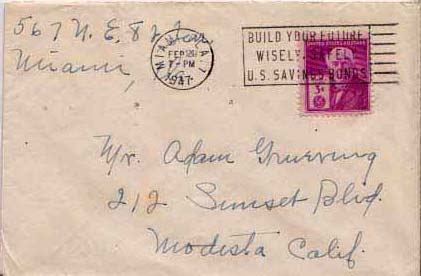 567 N.E. 82
Miami,
MIAMI, FLA.
FEB 26
7-PM
1947
BUILD YOUR FUTURE
WISELY, SAFELY
U.S. SAVINGS BONDS
UNITED STATES POSTAGE
3¢
Mr. Adam
212 Sunset Blvd.
Modesta Calif.